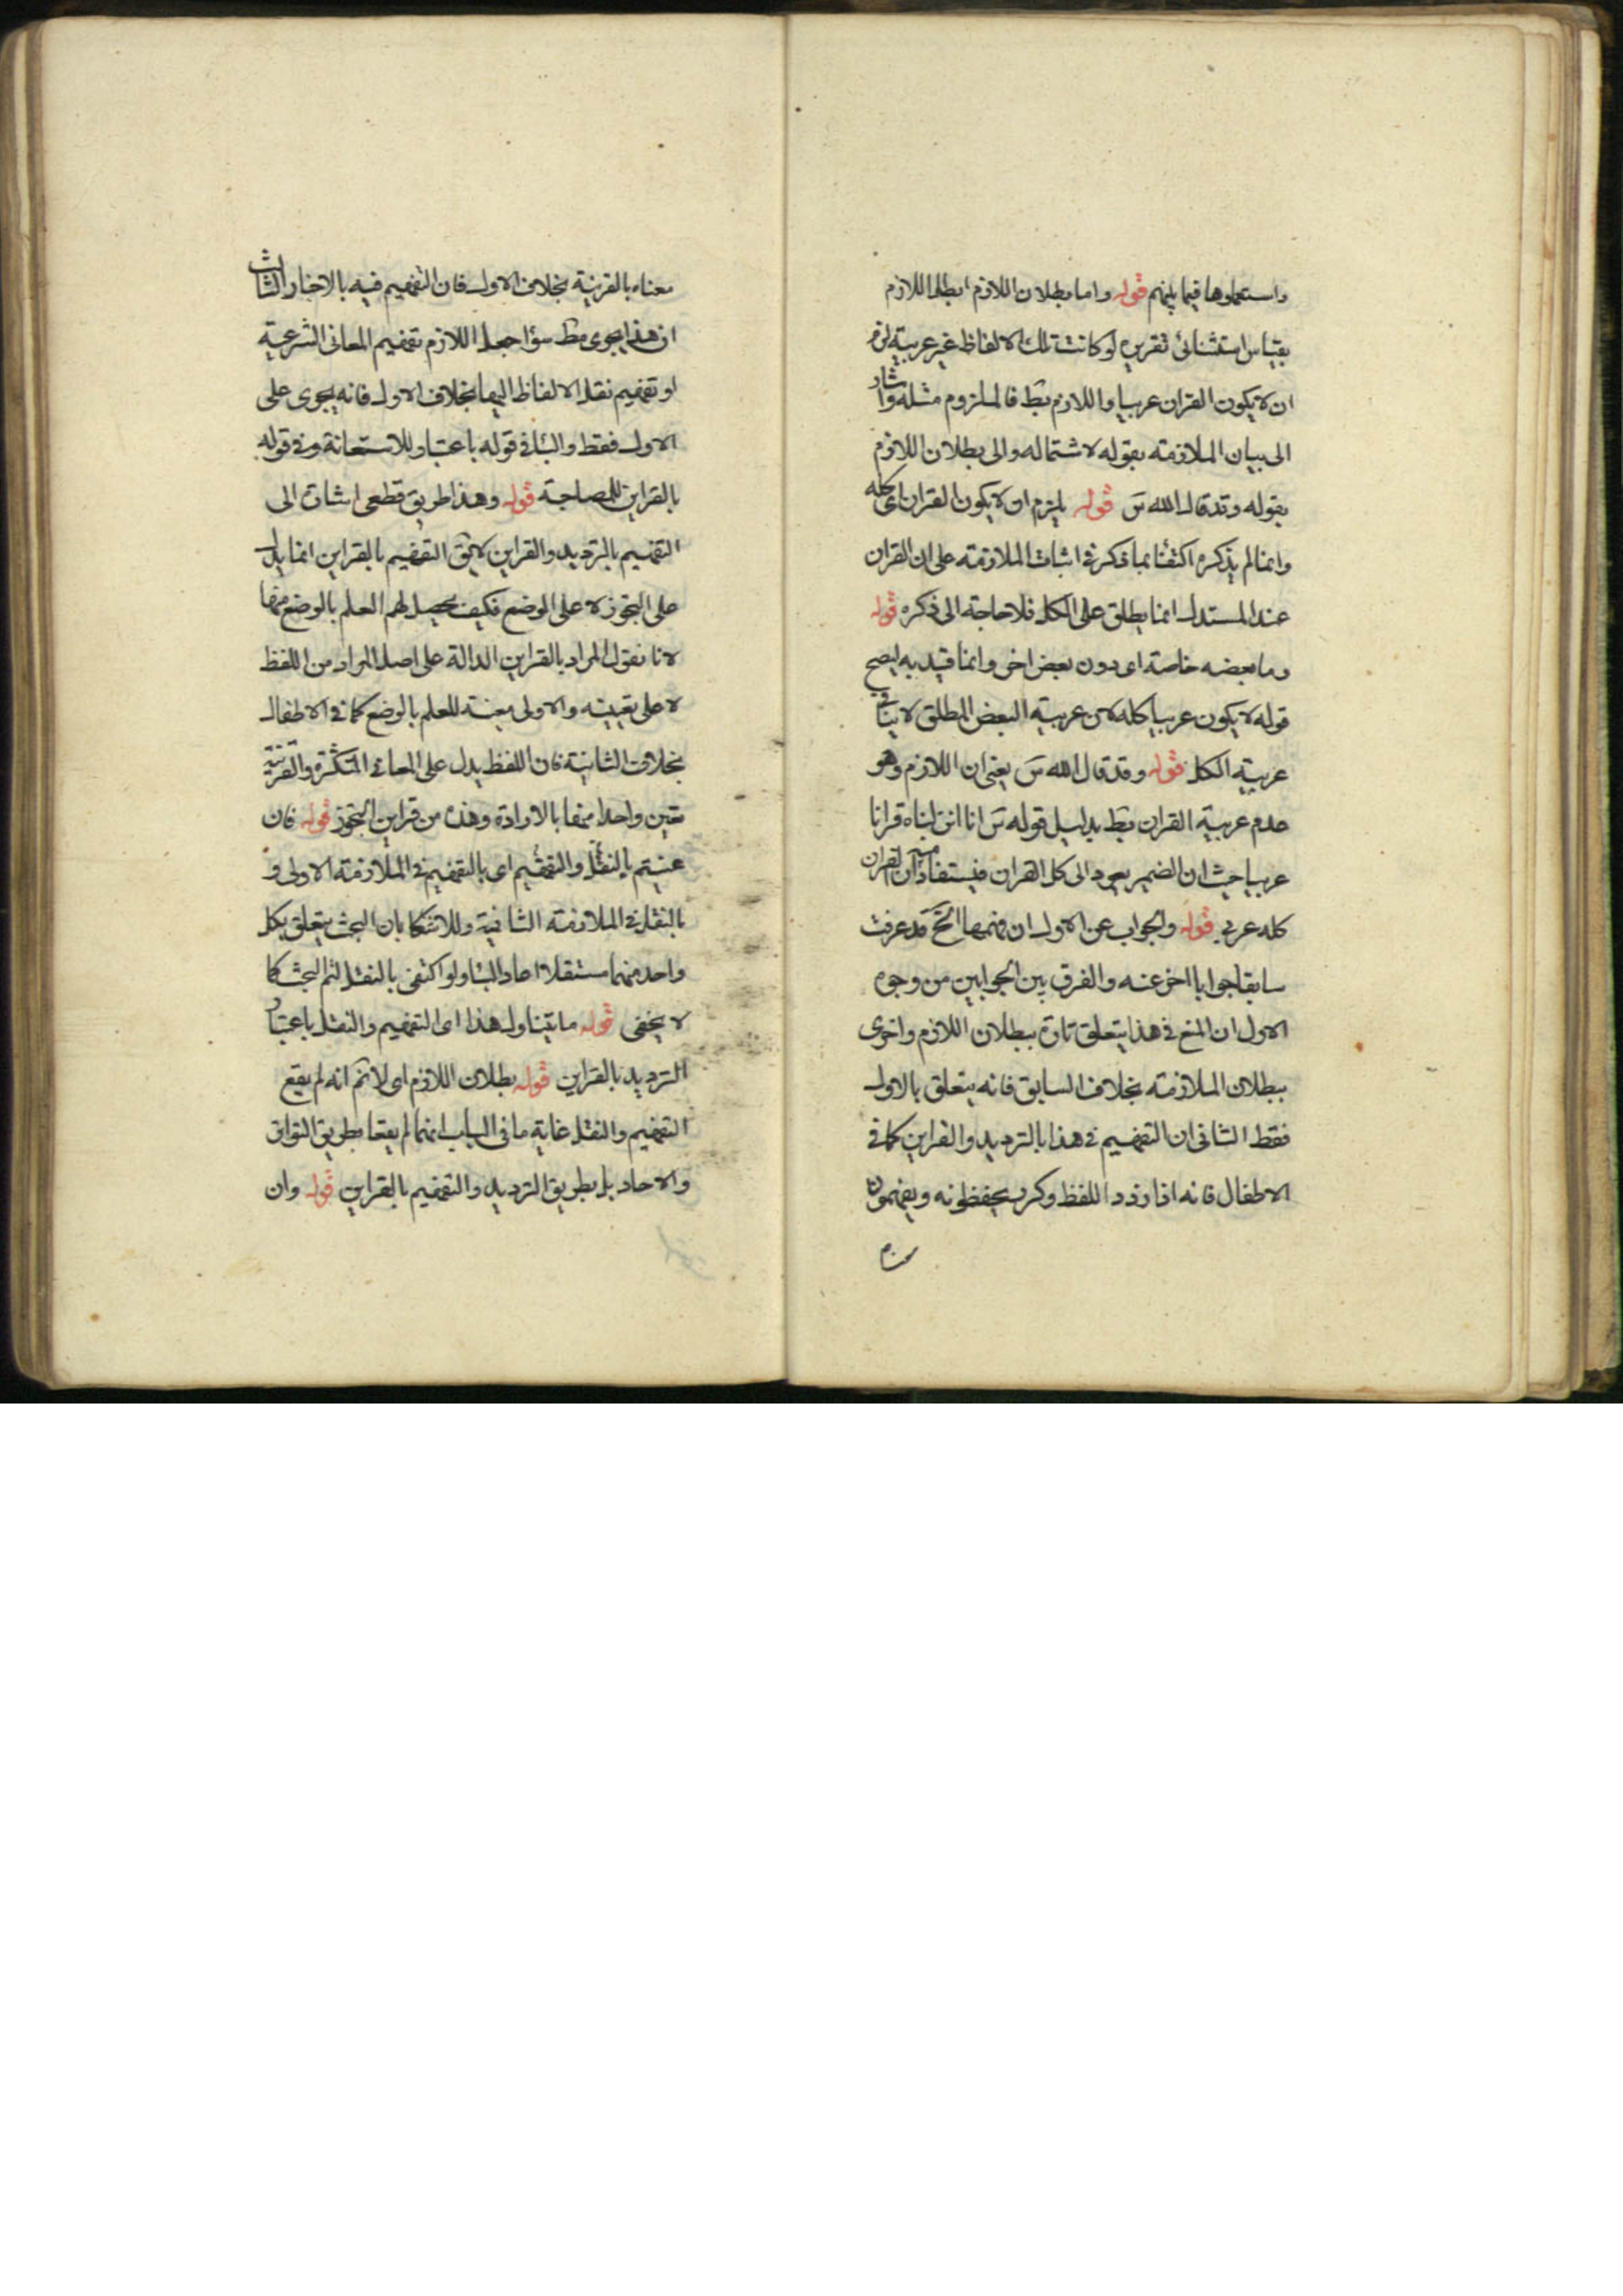 واستعملوها فيما بينهم قوله واما بطلان اللازم ابطل اللازم
بقياس استثنائى تقريره لو كانت تلك الالفاظ غير عربية لزم
ان لا يكون القران عربيا واللازم بط فالملزوم مثله واشار
الى بيان الملازمته بقوله لاشتماله والى بطلان اللازم
بقوله وقد قال الله تع قوله يلزم ان لا يكون القران اى كله
وانما لم يذكره اكتفئا بما ذكر فى اثبات الملازمته على ان القران
عند المستدل انما يطلق على الكل فلا حاجة الى ذكره قوله
وما بعضه خاصته اى دون بعض اخر وانما قيد به ليصح
قوله لا يكون عربيا كله لان عربية البعض المطلق لا ينافى
عربية الكل قوله وقد قال الله تع يعنى ان اللازم وهو
عدم عربية القران بط بدليل قوله تع انا انزلناه قرانا
عربيا حيث ان الضمير يعود الى كل القران فيستفاد منه ان القران
كله عربى قوله والجواب عن الاول ان فهمها الخ قد عرفت
سابقا جوابا اخر عنه والفرق بين الجوابين من وجوه
الاول ان المنع فى هذا يتعلق تارة ببطلان اللازم واخرى
ببطلان الملازمته بخلاف السابق فانه يتعلق بالاول
فقط الثانى ان التفهيم فى هذا بالترديد والقراين كما فى
الاطفال فانه اذا ردد اللفظ وكرر يحفظونه ويفهمون
معناه بالقرينة بخلاف الاول فان التفهيم فيه بالاخبار الثالث
ان هذا يجرى مط سواء جعل اللازم تفهيم المعانى الشرعية
او تفهيم نقل الالفاظ اليها بخلاف الاول فانه يجرى على
الاول فقط والبا فى قوله باعتبار للاستعانة وفى قوله
بالقراين للمصاحبة قوله وهذا طريق قطعى اشارة الى
التفهيم بالترديد والقراين لا يق التفهيم بالقراين انما يدل
على التجوز لا على الوضع فكيف يحصل لهم العلم بالوضع منها
لانا نقول المراد بالقراين الدالة على اصل المراد من اللفظ
لا على تعيينه والاولى معينة للعلم بالوضع كما فى الاطفال
بخلاف الثانية فان اللفظ يدل على المعانى المتكثرة والقرينة
تعين واحدا منها بالارادة وهذه من قراين التجوز قوله فان
عنيتم بالنقل والتفهيم اى بالتفهيم فى الملازمته الاولى و
بالنقل فى الملازمته الثانية وللاشكا بان البحث يتعلق بكل
واحد منهما مستقلا اعاد البا ولو اكتفى بالنقل لتم البحث كما
لا يخفى قوله ما يتناول هذا اى التفهيم والنقل باعتبار
الترديد بالقراين قوله بطلان اللازم اى لا نم انه لم يقع
التفهيم والنقل غاية ما فى الباب انهما لم يقعا بطريق التواتر
والاحاد بل بطريق الترديد والتفهيم بالقراين قوله وان